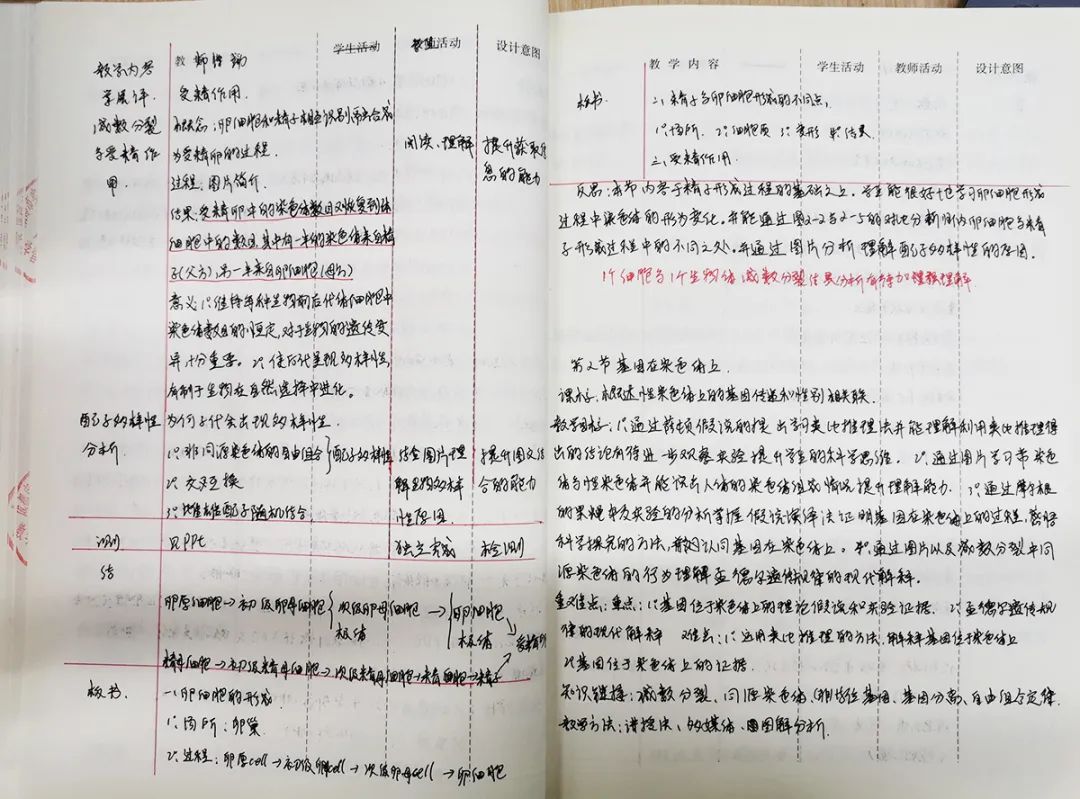 教师活动 学生活动 教师活动 设计意图
教学内容
受精作用.
减数分裂
与受精作
用
概念：卵细胞和精子相互识别、融合成
为受精卵的过程.
阅读、理解
提升获取信
息的能力
过程：图片简介.
结果：受精卵中的染色体数目又恢复到体
细胞中的数目,其中有一半的染色体来自精
子(父方),另一半来自卵细胞(母方)
意义 1°维持每种生物前后代体细胞中
染色体数目的恒定,对于生物的遗传变
异十分重要. 2°使后代呈现多样性,
有利于生物在自然选择中进化。
配子多样性
分析.
为何子代会出现多样性.
1°非同源染色体的自由组合
2°交叉互换
3°雌雄配子随机结合.
配子多样性
结合图片理
解生物多样
性原因
提升图文结
合的能力
见PPt
独立完成
检测
结
卵原细胞→初级卵母细胞 次级卵母细胞→卵细胞
极体 极体
精原细胞→初级精母细胞→次级精母细胞→精细胞→精子
板书.
一、卵细胞的形成
1°场所：卵巢
2°过程：卵原cell→初级卵cell→次级卵母cell→卵细胞
教 学 内 容 学生活动 教师活动 设计意图
板书
二、精子与卵细胞形成的不同点,
1°场所. 2°细胞质 3°变形 4°结果.
三、受精作用.
反思：本节内容于精子形成过程的基础之上.学生能很好地学习卵细胞形成
过程中染色体的行为变化。并能通过图2-2与2-5的对比分析归纳卵细胞与精
子形成过程中的不同之处.并通过图片分析理解配子多样性的原因。
1个细胞与1个生物体减数分裂结果分析有待加理解
第2节 基因在染色体上.
课标：概述性染色体上的基因传递和性别相关联.
教学目标：1°通过萨顿假说的提出学习类比推理法并能理解利用类比推理得
出的结论有待进一步观察实验提升学生的科学思维. 2°通过图片学习常染色
体与性染色体并能说出人体的染色体组成情况提升理解能力. 3°通过摩尔根
的果蝇杂交实验的分析掌握假说演绎法证明基因在染色体上的过程,感悟
科学探究的方法,并认同基因在染色体上. 4°通过图片以及减数分裂中同
源染色体的行为理解孟德尔遗传规律的现代解释.
重难点：重点：1°基因位于染色体上的理论假说和实验证据. 2°孟德尔遗传规
律的现代解释 难点：1°运用类比推理的方法,解释基因位于染色体上
2°基因位于染色体上的证据.
知识链接：减数分裂、同源染色体、等位基因、基因分离、自由组合定律.
教学方法：讲授法、多媒体、图解分析.